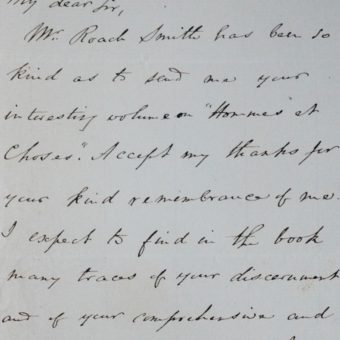 My dear Sir,
Mr. Roach Smith has been so
kind as to send me your
interesting volume on "Hommes et
Choses". Accept my thanks for
your kind remembrance of me.
I expect to find in the book
many traces of your discernment
and of your comprehensive and